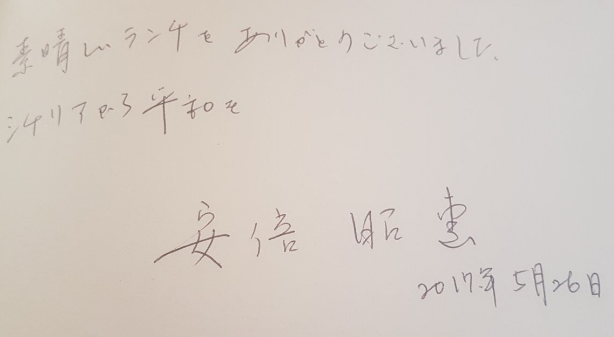 素晴しいランチをありがとうございました。
シチリアから平和を
安倍 昭恵
2017年5月26日